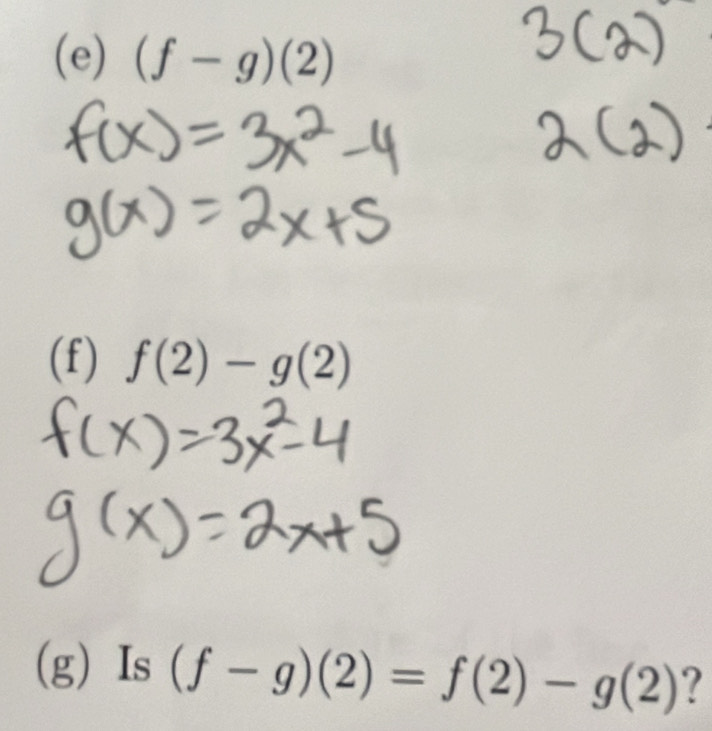 (e) (f − g)(2)
3(2)
f(x) = 3x² − 4
2(2)
g(x) = 2x + 5
(f) f(2) − g(2)
f(x) = 3x² − 4
g(x) = 2x + 5
(g) Is (f − g)(2) = f(2) − g(2)?